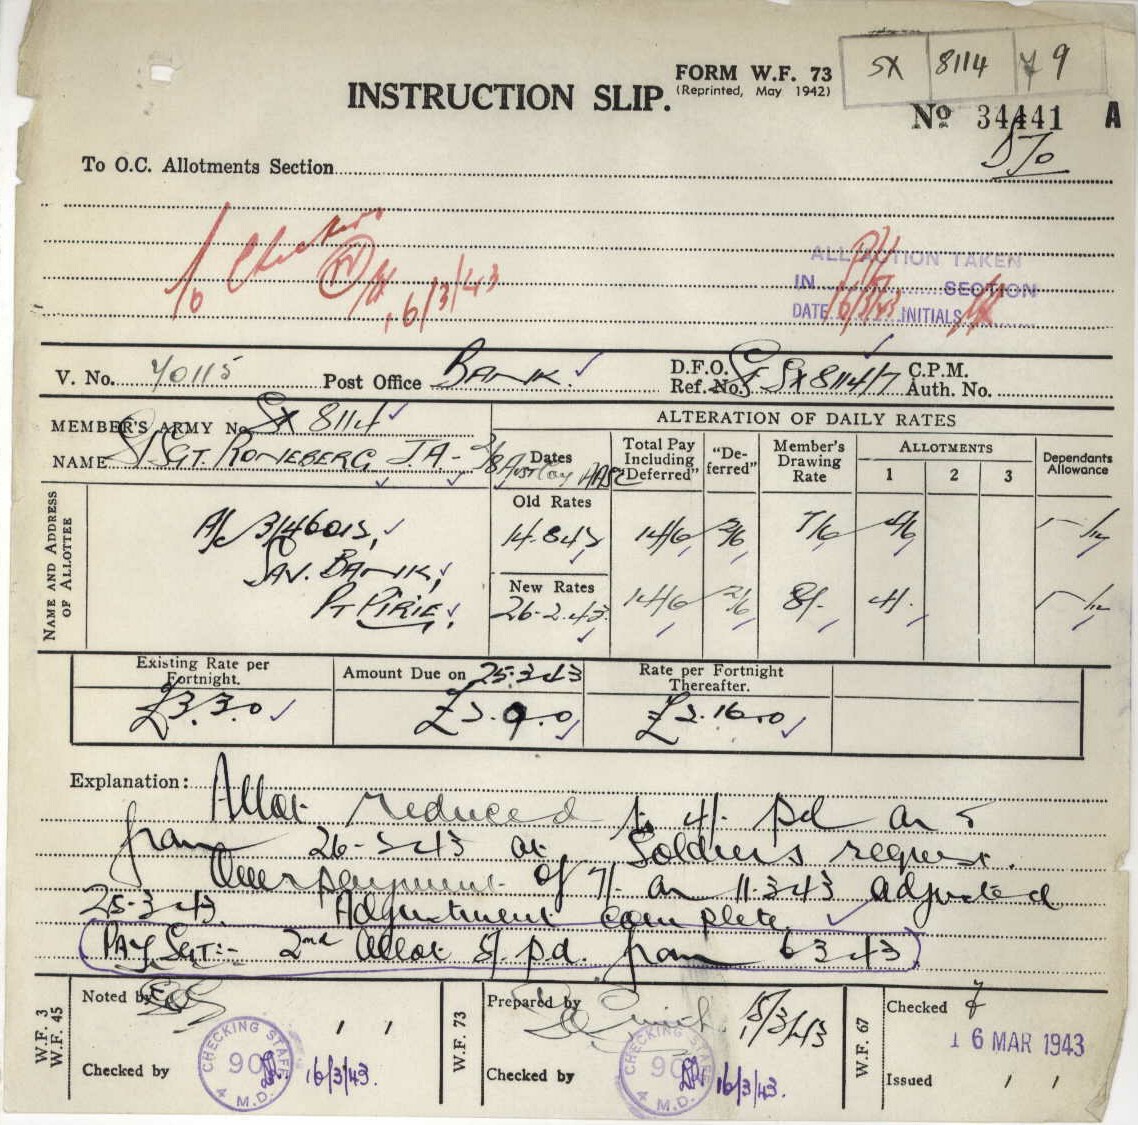 SX 8114 9
FORM W.F. 73
(Reprinted, May 1942)
INSTRUCTION SLIP.
No 34441 A
To O.C. Allotments Section
Checker
16/3/43
ALL ACTION TAKEN
IN SECTION
DATE 16/3/43 INITIALS
V. No. 40115 Post Office BANK. D.F.O. Ref. No. SX 8114/7 C.P.M. Auth. No.
MEMBER'S ARMY No. SX 8114
NAME S/SGT. RONEBERG J.A-
ALTERATION OF DAILY RATES
Dates
Total Pay Including "Deferred"
"De-ferred"
Member's Drawing Rate
ALLOTMENTS
1 2 3
Dependants Allowance
NAME AND ADDRESS OF ALLOTTEE
A/c 3146013,
SAV. BANK,
PT PIRIE,
Old Rates
14/6 2/6 7/6 4/6
New Rates
26-2-43 14/6 2/6 8/- 4/-
Existing Rate per Fortnight.
£3.3.0
Amount Due on 25-3-43
£2.9.0
Rate per Fortnight Thereafter.
£2.16.0
Explanation: Allot reduced to 4/- pd as
from 26-2-43 at Soldiers request.
Overpayment of 7/- on 11-3-43 adjusted
25-3-43. Adjustment complete
PAY SGT:- 2nd Allot 8/- pd. from 6 3 43
W.F. 3
W.F. 45
Noted by
Checked by
CHECKING STAFF
90
4 M.D.
16/3/43.
W.F. 73
Prepared by
15/3/43
Checked by
CHECKING STAFF
90
4 M.D.
16/3/43.
W.F. 67
Checked
16 MAR 1943
Issued / /